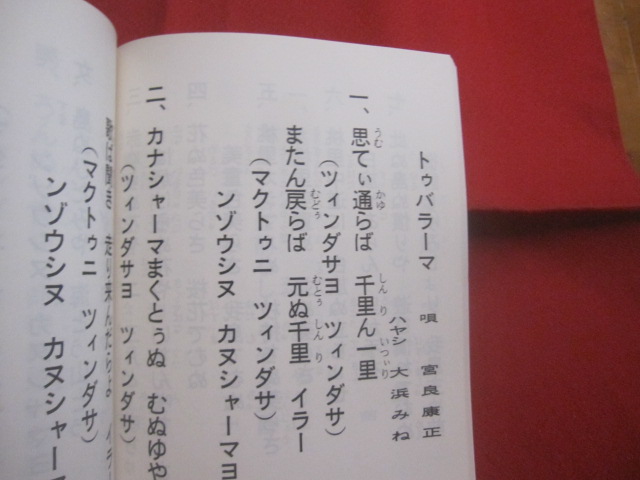 トゥバラーマ 唄 宮良康正
ハヤシ 大浜みね
一、思てぃ通らば 千里ん一里
うむ かゆ しんり いつぃり
(ツィンダサヨ ツィンダサ)
またん戻らば 元ぬ千里 イラー
むどぅ むとぅ しんり
(マクトゥニ ツィンダサ)
ンゾウシヌ カヌシャーマヨ
二、カナシャーマまくとぅぬ むぬゆや
(ツィンダサヨ ツィンダサ)
(マクトゥニ ツィンダサ)
ンゾウシヌ カヌシャーマ